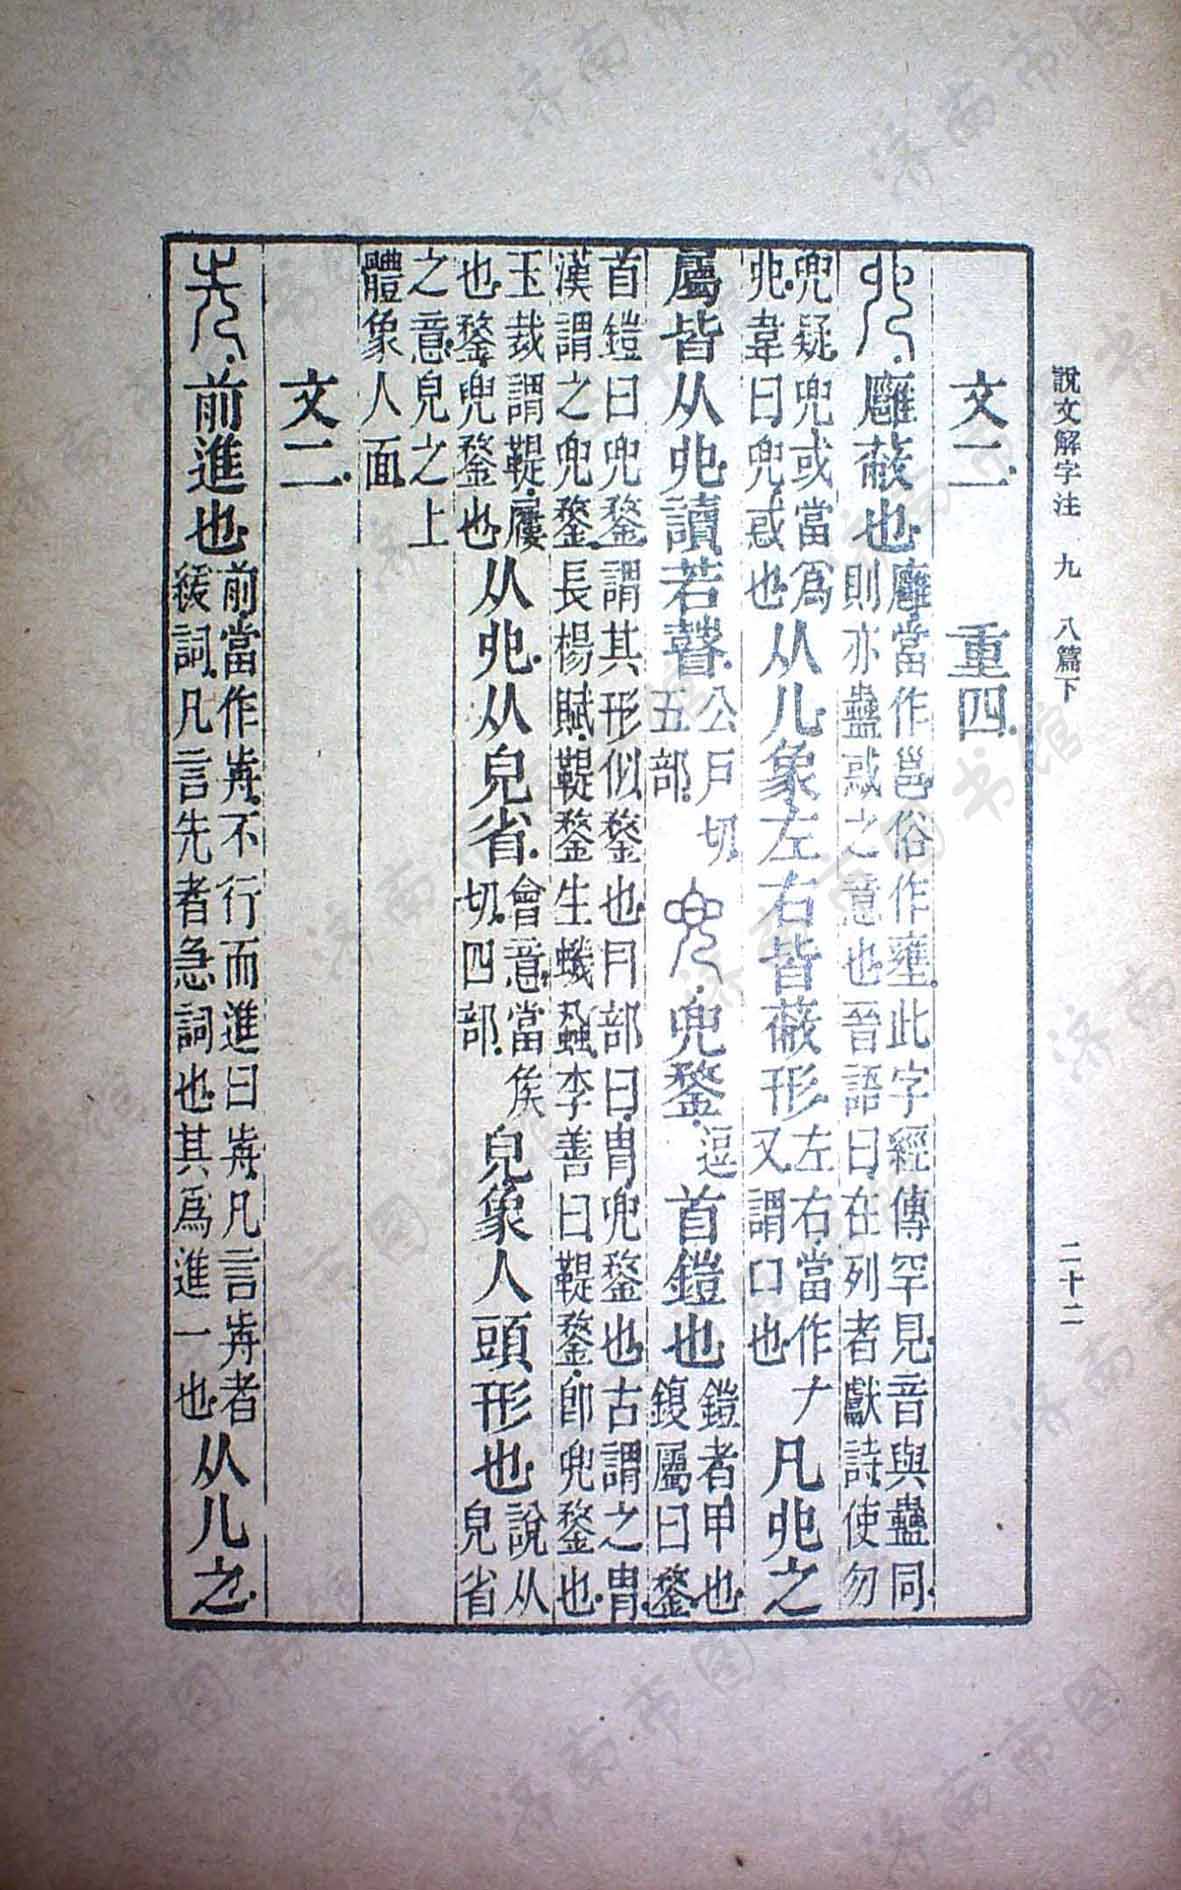 說文解字注 九 八篇下 二十二
文二 重四
𠑹 廱蔽也
廱當作邕俗作壅此字經傳罕見音與蠱同
則亦蠱惑之意也晉語曰在列者獻詩使勿
兜疑兜或當爲
𠑹韋曰兜惑也
从儿象左右皆蔽形
左右當作𠂇
又謂口也
凡𠑹之
屬皆从𠑹讀若瞽
公戶切
五部
兜 兜鍪
逗
首鎧也
鎧者甲也
鍑屬曰鍪
首鎧曰兜鍪謂其形似鍪也冃部曰胄兜鍪也古謂之胄
漢謂之兜鍪長楊賦鞮鍪生蟣蝨李善曰鞮鍪卽兜鍪也
玉裁謂鞮屨
也鍪兜鍪也
从𠑹从皃省
會意當矦
切四部
皃象人頭形也
說从
皃省
之意皃之上
體象人面
文二
先 前進也
前當作歬不行而進曰歬凡言歬者
緩詞凡言先者急詞也其爲進一也
从儿之